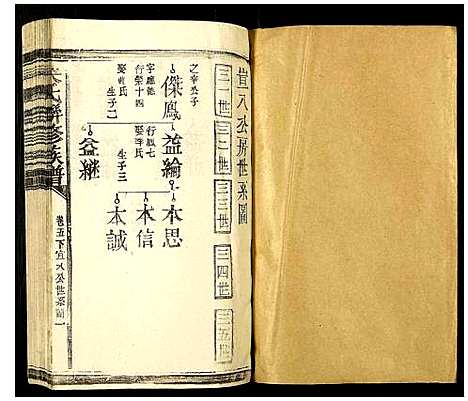 宣八公房世系圖
三一世
三二世
三三世
三四世
三五世
之幸公子
傑鳳
字應德
行榮十四
生子二
益綸
行鳳七
娶李氏
生子三
本思
本信
本誠
益継
氏聯修族譜
卷五下宣八公世系圖一